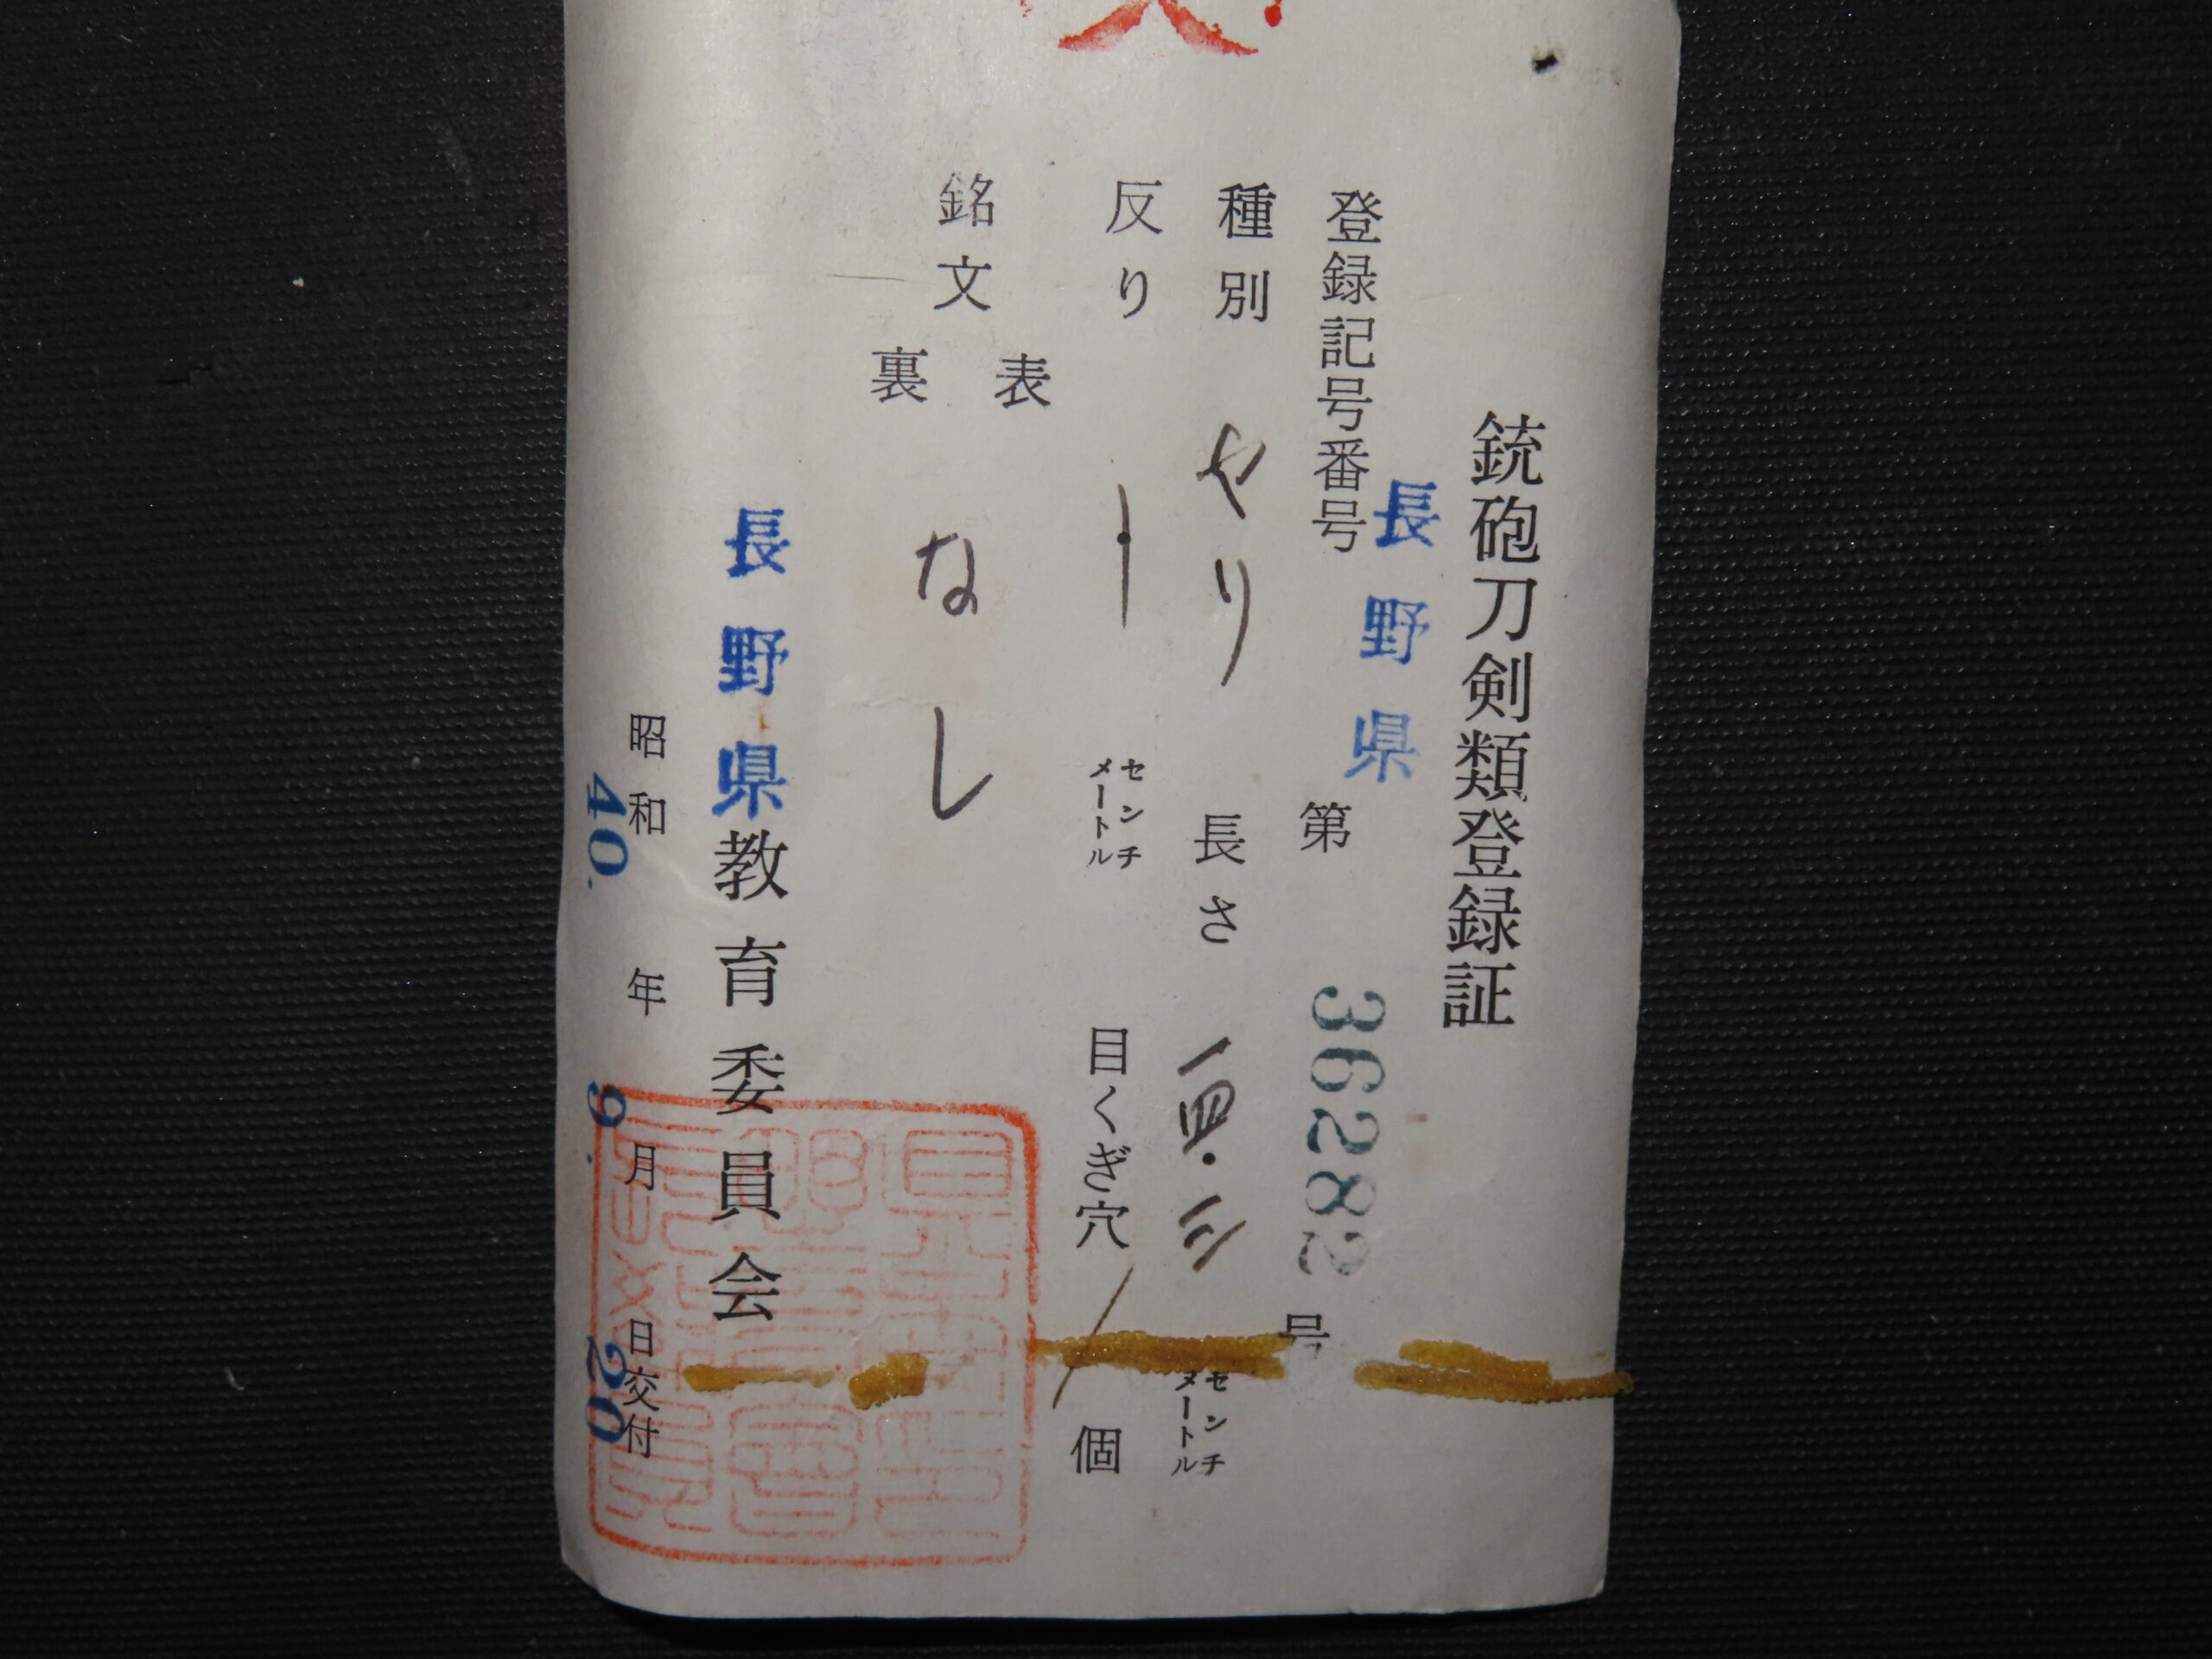 銃砲刀剣類登録証
長野県
登録記号番号 第 36282 号
種別 やり 長さ 一四・三 センチメートル
反り ー センチメートル 目くぎ穴 1 個
銘文 表
なし
裏
長野県教育委員会
昭和 40. 年 9. 月 20 日交付